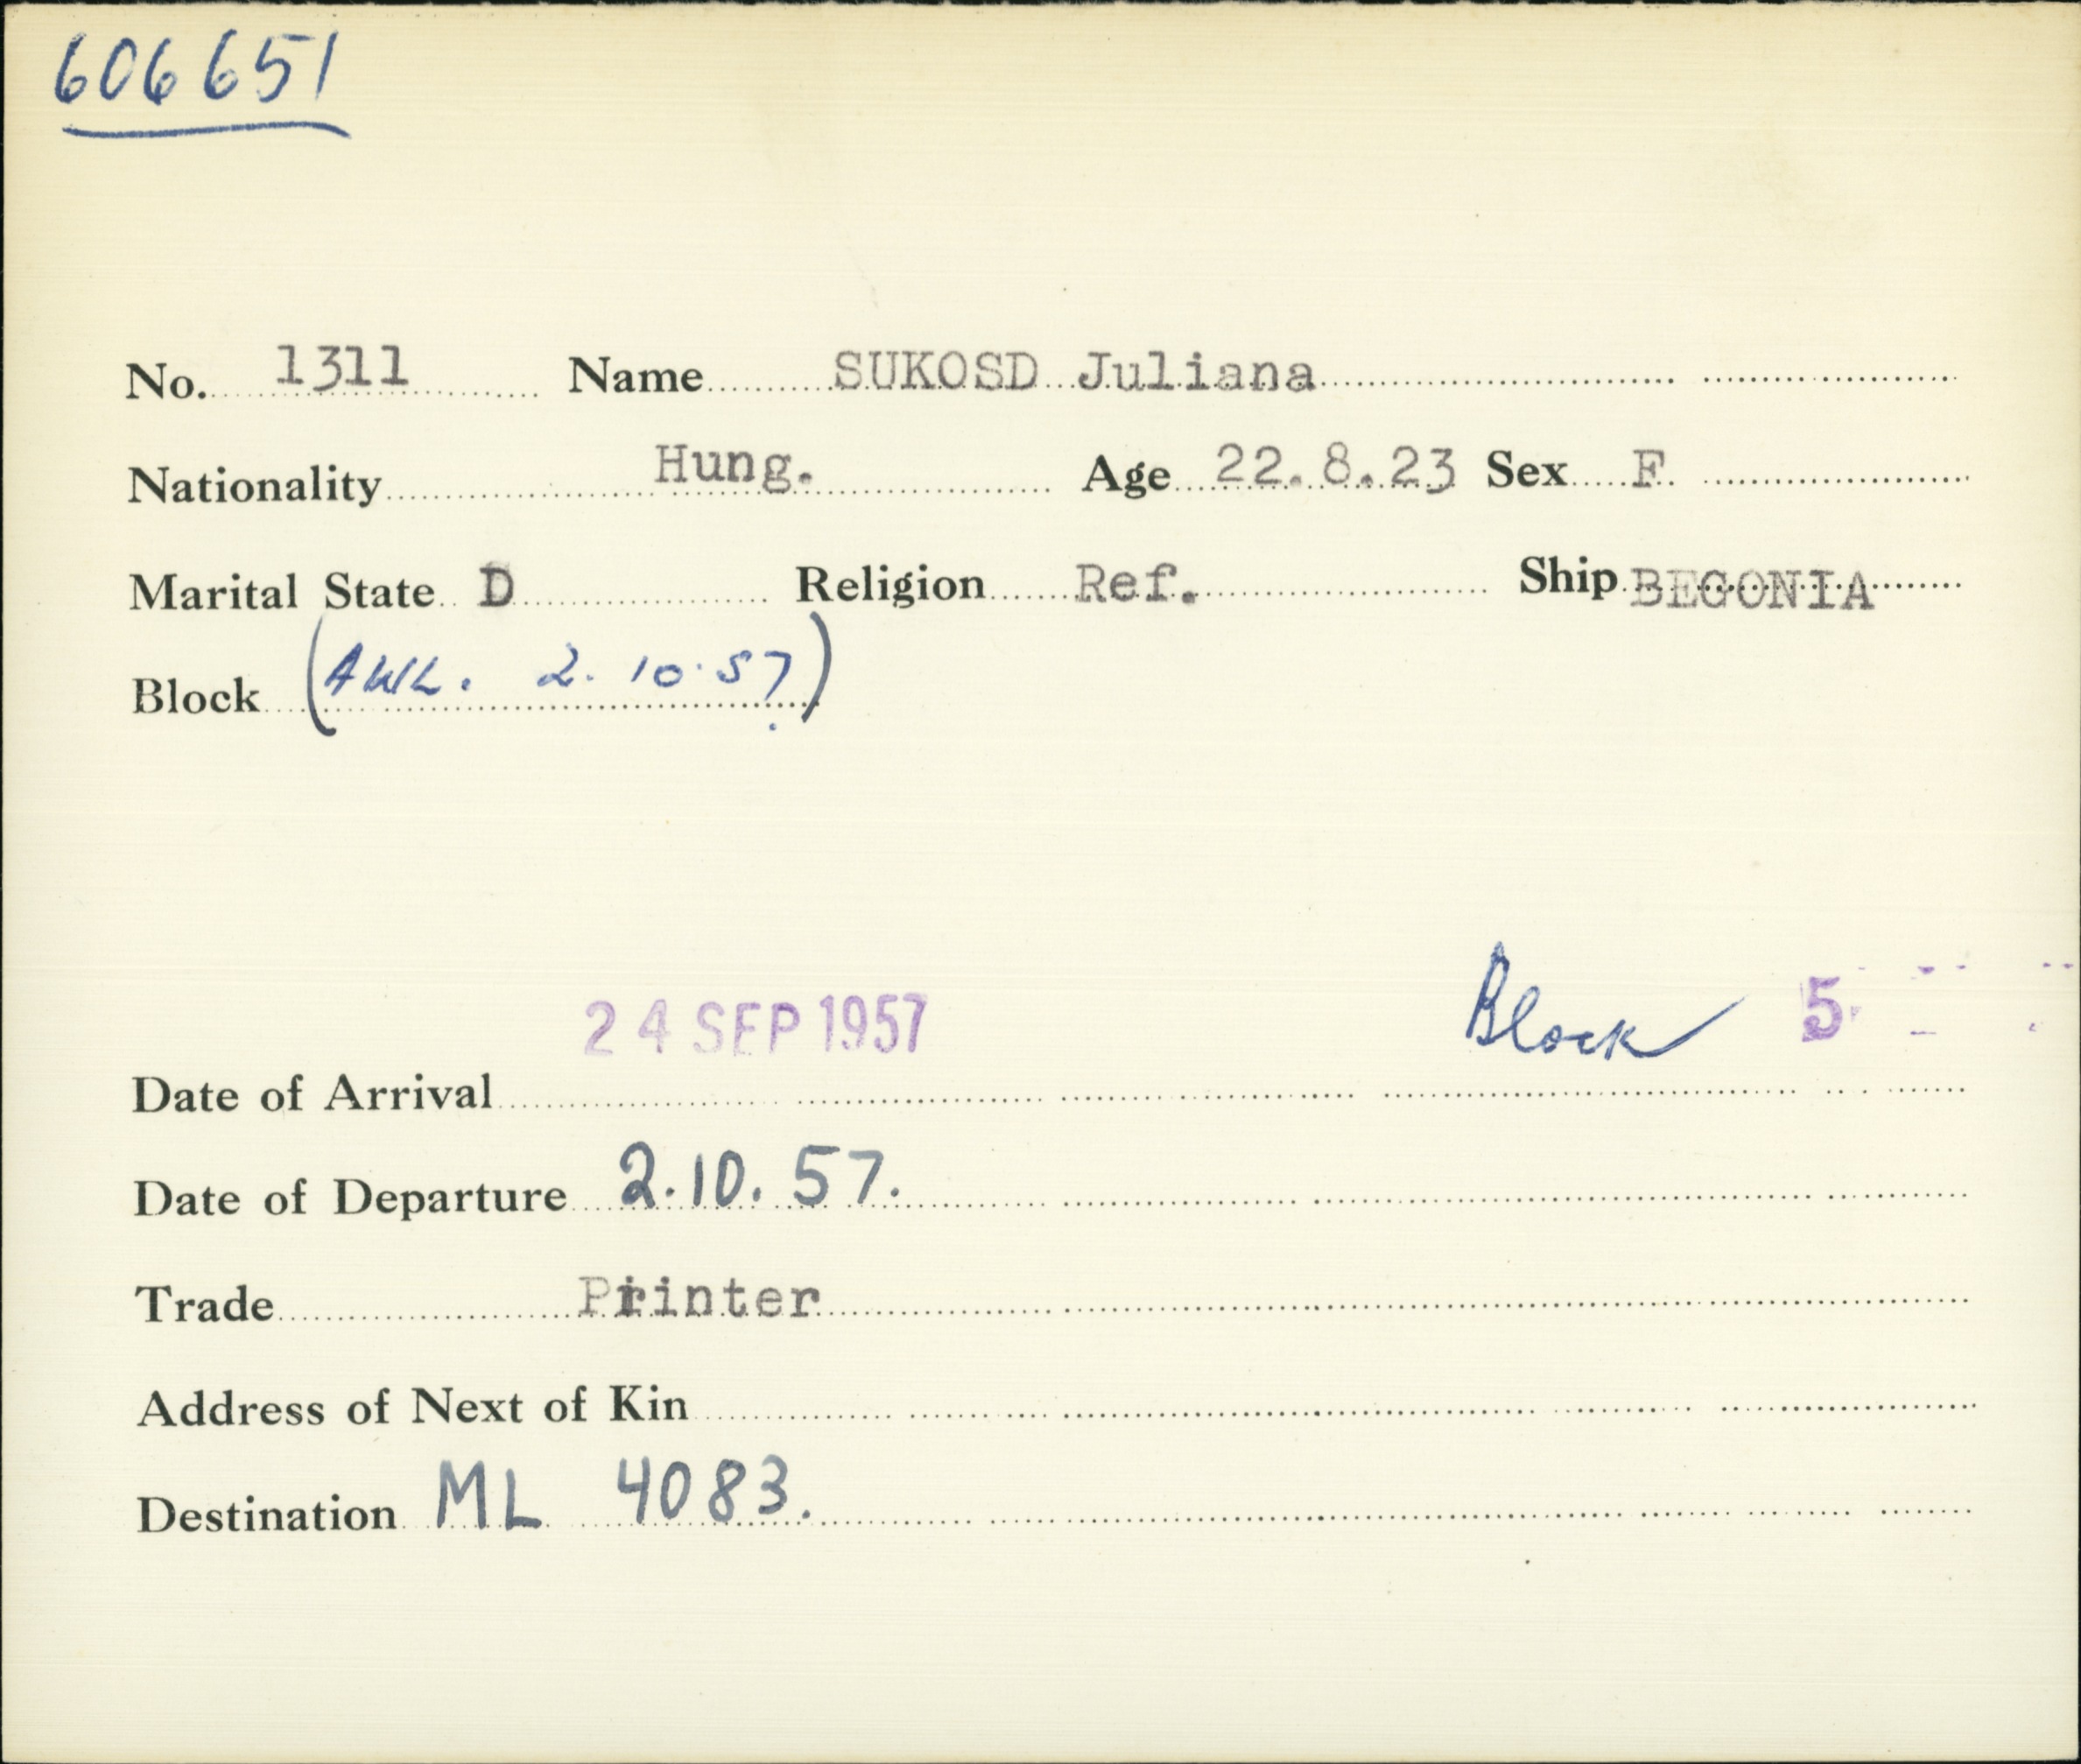 606651
No. 1311 Name SUKOSD Juliana
Nationality Hung. Age 22.8.23 Sex F.
Marital State D Religion Ref. Ship BEGONIA
Block (AWL. 2.10.57)
24 SEP 1957 Block 5
Date of Arrival
Date of Departure 2.10.57.
Trade Printer
Address of Next of Kin
Destination ML 4083.